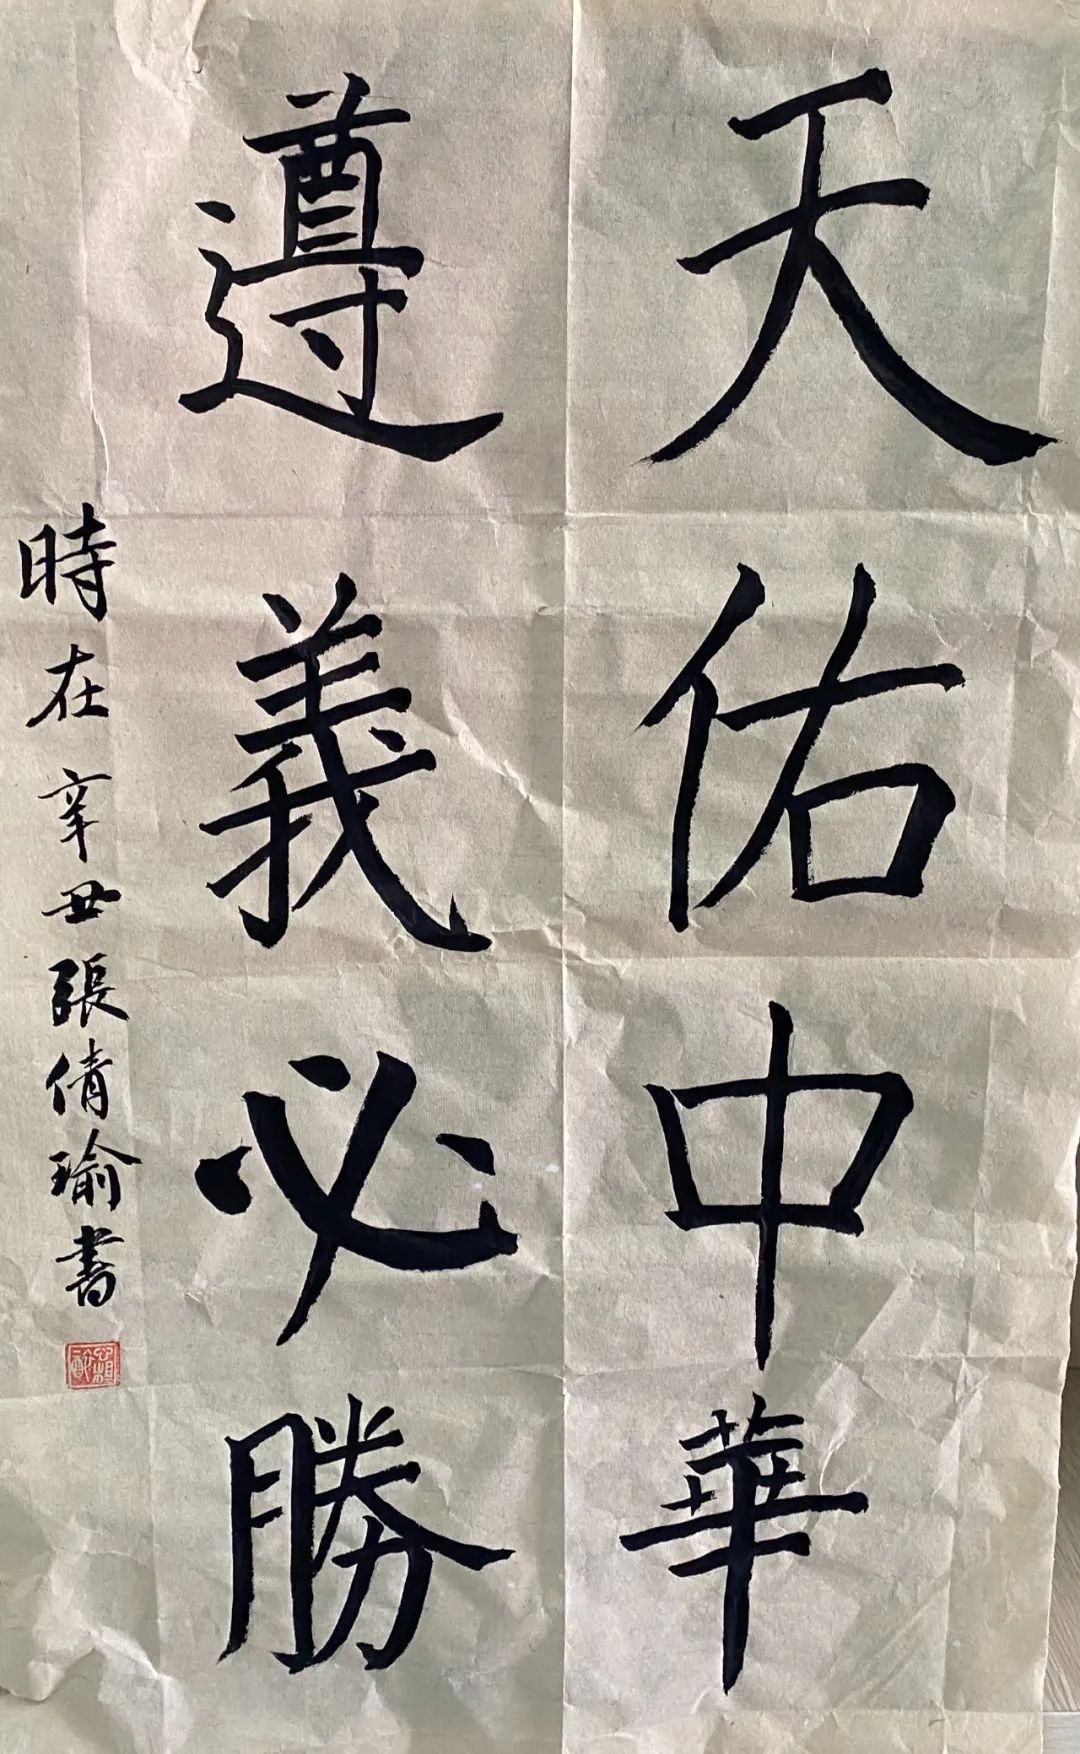 天佑中華
遵義必勝
時在辛丑張倩瑜書